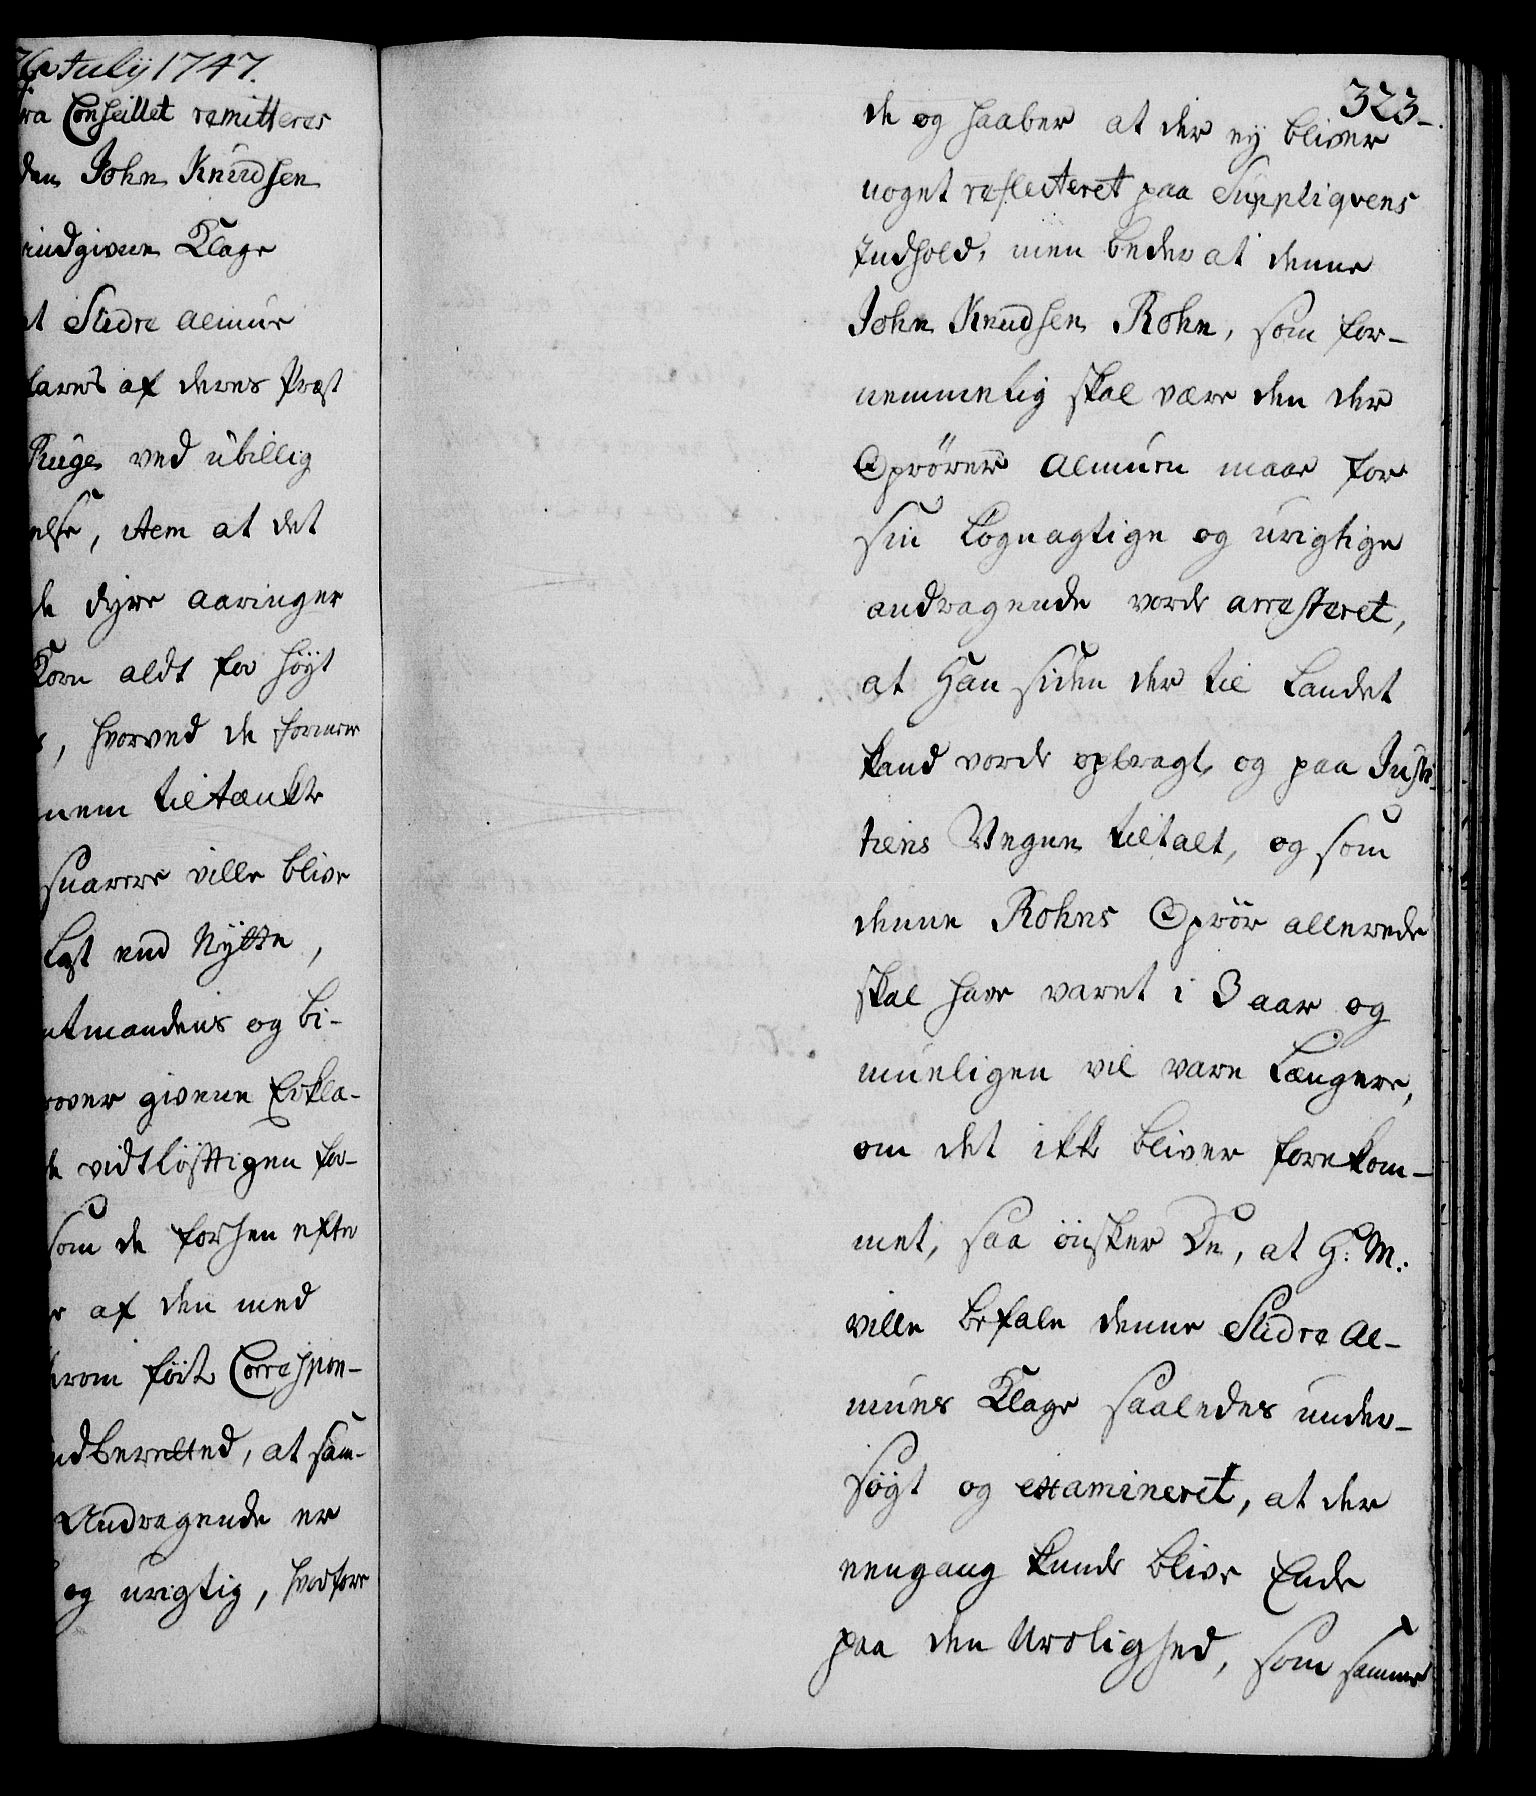 July 1747.
Conseillet remitteres
John Knudsen
indgivne Klage
Slidre Almue
af deres Præst
Ruge ved ubillig
else, item at det
de dyre aaringer
Korn aldt for høyt
, hvorved de formeener
tiltænkte
svarere ville blive
Last end Nytte,
og bi-
over givne Erkla-
vidtløfttigen for-
som de forhen efter
af den med
herom føite Correspon-
indberetted, at saa-
Andragende er
og urigtig, hvorfore
323-
de og haaber at der ey bliver
noget reflecteret paa Suppliqvens
Indhold, men beder at denne
John Knudsen Rohn, som for-
nemmelig skal være den der
Oprører Almuen maae for
sin Løgnagtige og urigtige
andragende vorde arresteret,
at Han siden der til Landet
kand vorde opbragt, og paa Justi-
tiens Vegne tiltalt, og som
denne Rohns Oprør allerede
skal have varet i 3 aar og
mueligen vil vare Længere,
om det ikke bliver forekom-
met, saa ønsker De, at H: M:
ville befale denne Slidre Al-
mues Klage saaledes under-
søgt og examineret, at der
eengang kunde blive Ende
paa den Urolighed, som samme